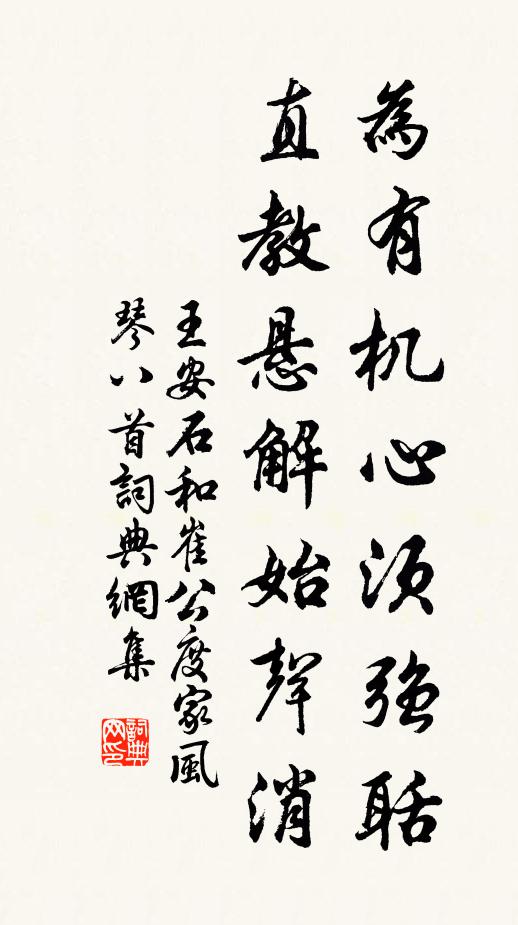 為有机心須強聒
直教悬解始聲消
王安石和崔公度家風
琴八首詞典網集
詞典网印